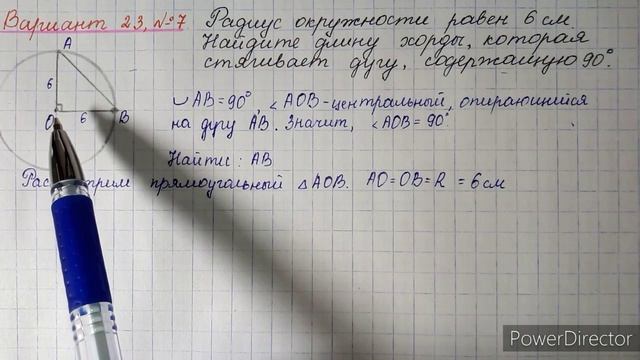 Вариант 23, №7
Радиус окружности равен 6 см.
Найдите длину хорды, которая
стягивает дугу, содержащую 90°.
A
6
O 6 B
◡AB=90°, ∠AOB-центральный, опирающийся
на дугу AB. Значит, ∠AOB=90°
Найти: AB
прямоугольный △AOB. AO=OB=R =6см
PowerDirector